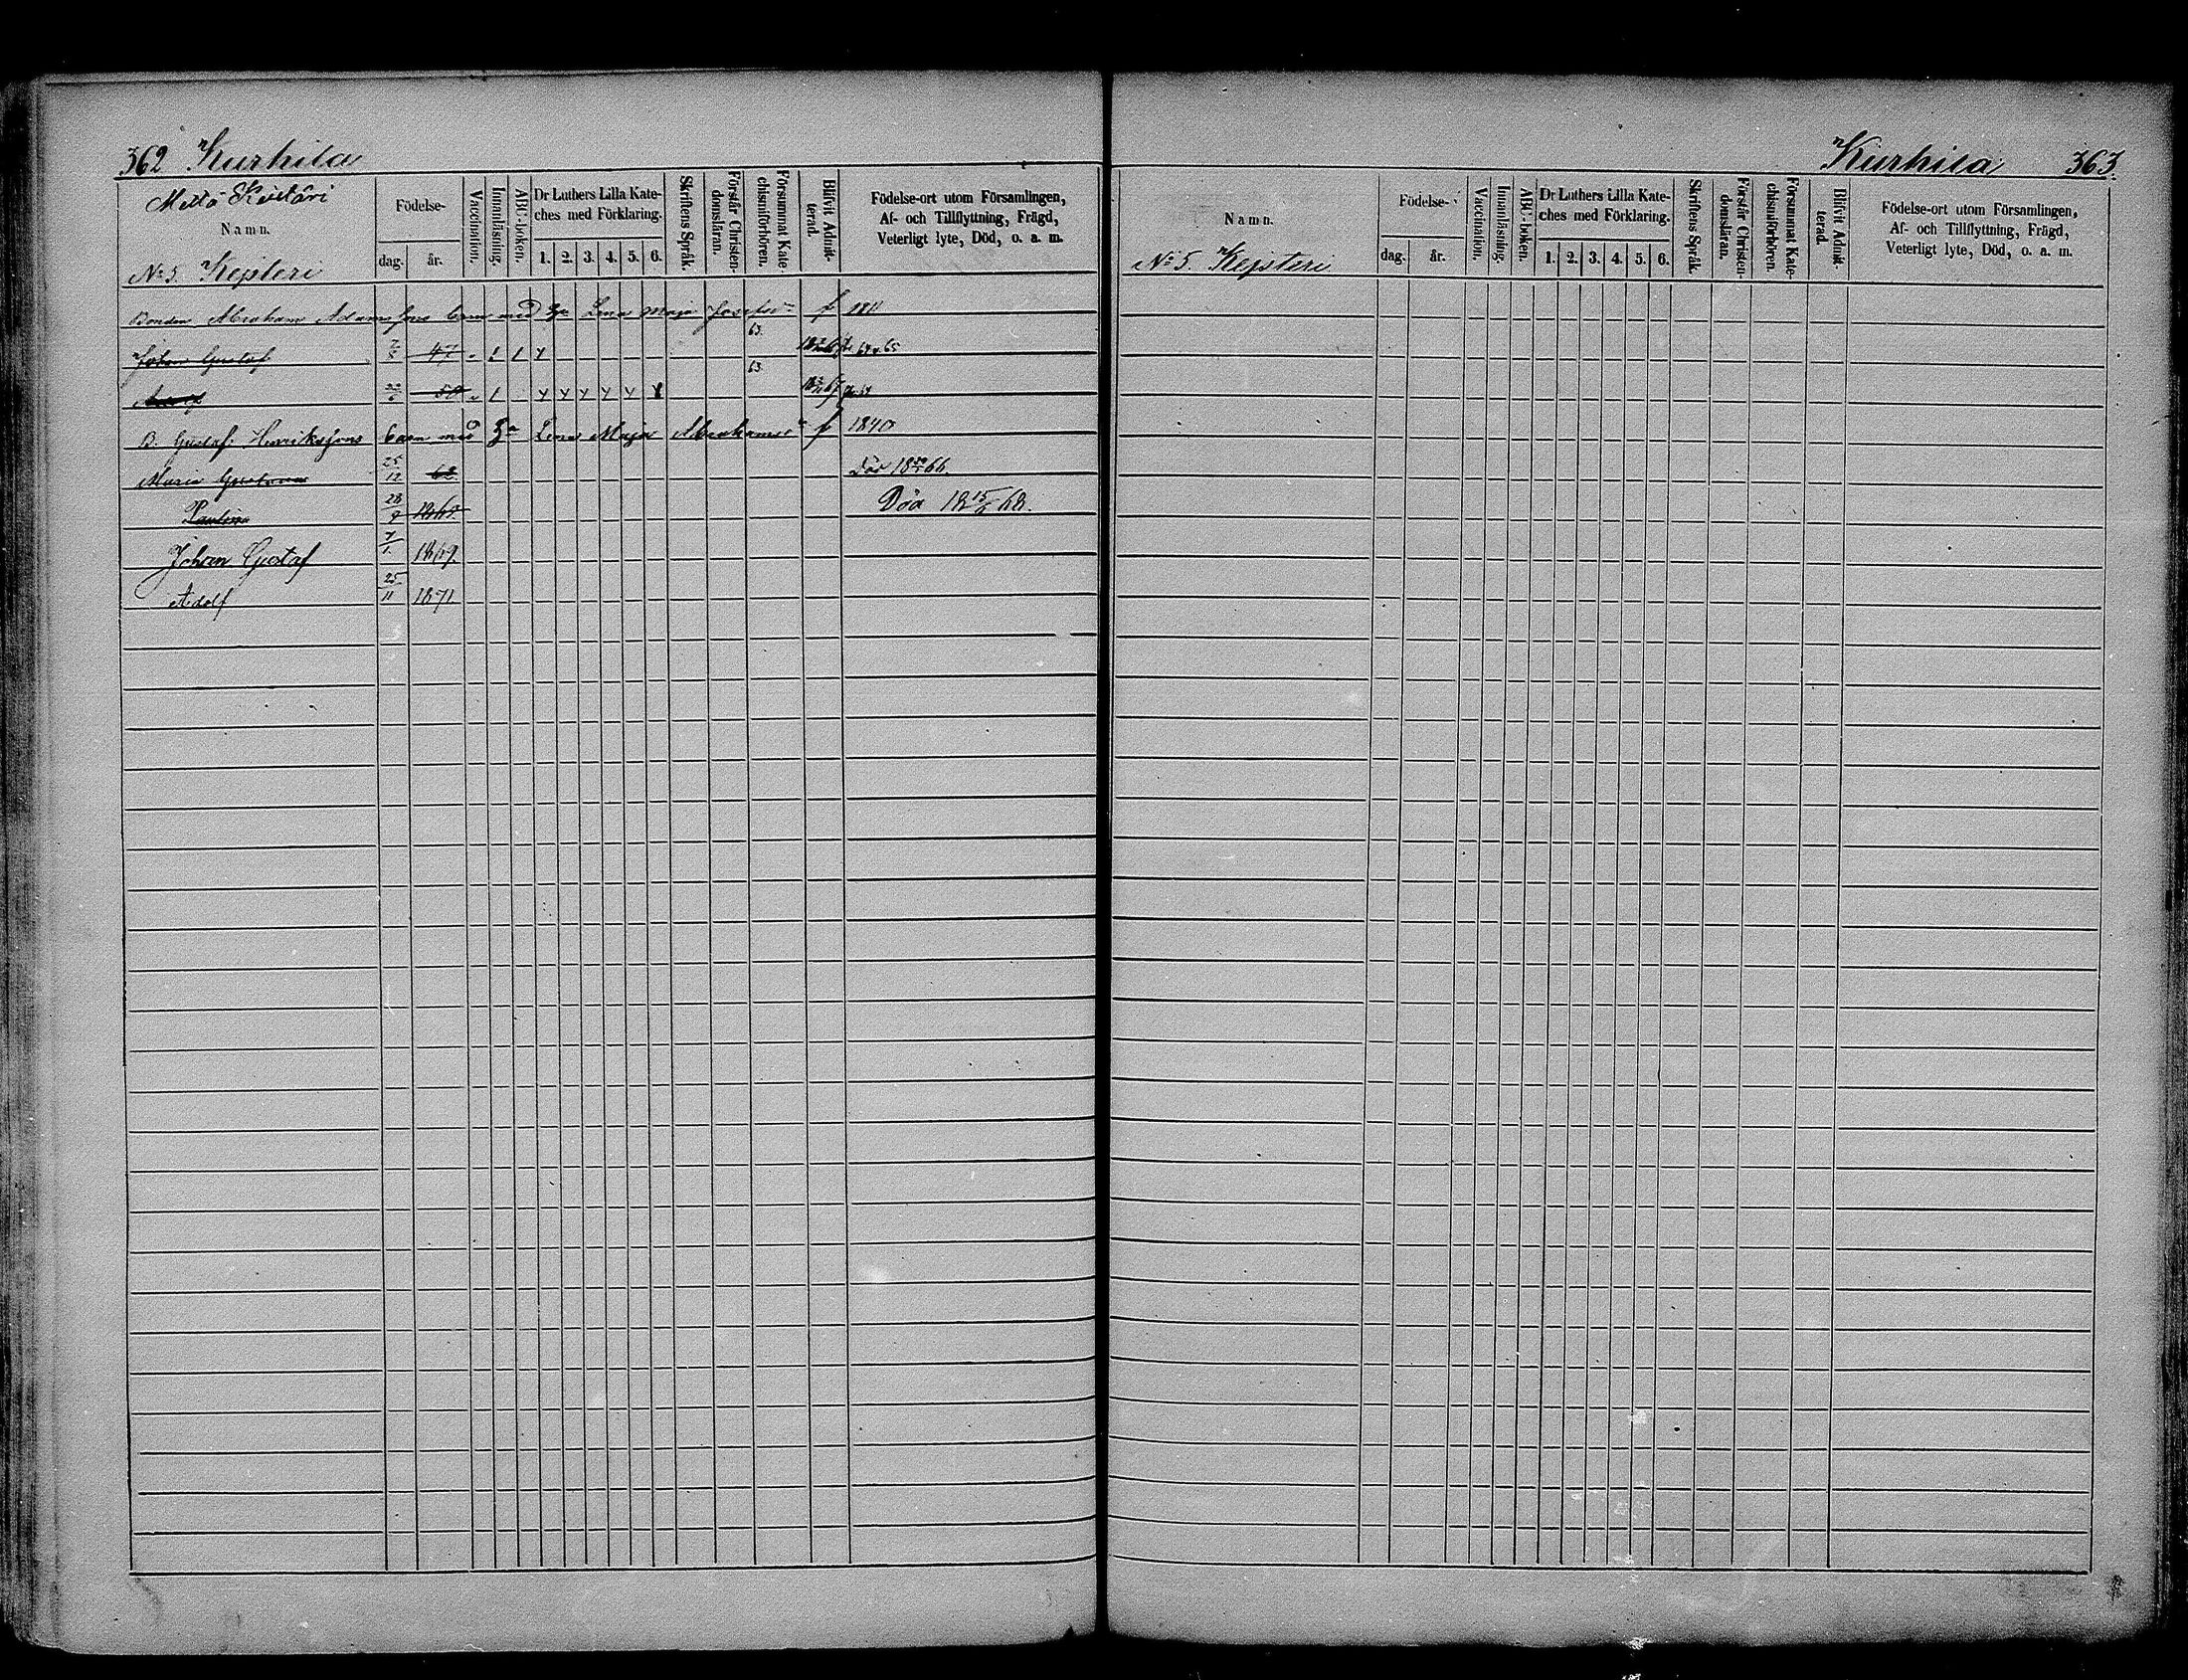 362 Kurhila
Mettä Keistäri
Namn.
No 5. Kejsteri
Födelse-
dag. år.
Vaccination.
Innanläsning.
ABC-boken.
Dr Luthers Lilla Kate-
ches med Förklaring.
1. 2. 3. 4. 5. 6.
Skriftens Språk.
Förstår Christen-
domsläran.
Försummat Kate-
chismiförhören.
Blifvit Admit-
terad.
Födelse-ort utom Församlingen,
Af- och Tillflyttning, Frägd,
Veterligt lyte, Död, o. a. m.
Bonden Abraham Adamssons barn med Lena Maja Josefs f 181
Johan Gustaf 7/5 47 1 1 63. 64. 65
Adolf 22/6 50 1 63. 64
B. Gustaf Henrikssons barn med Lena Maja Abrahams f 1840
Maria Gustava 25/12 62 Död 66.
Paulina 28/9 1865 Död 18 15/5 68.
Johan Gustaf 7/1. 1869.
Adolf 25/11 1871.
Kurhila 363.
Namn.
No 5. Kejsteri
Födelse-
dag. år.
Vaccination.
Innanläsning.
ABC-boken.
Dr Luthers Lilla Kate-
ches med Förklaring.
1. 2. 3. 4. 5. 6.
Skriftens Språk.
Förstår Christen-
domsläran.
Försummat Kate-
chismiförhören.
Blifvit Admit-
terad.
Födelse-ort utom Församlingen,
Af- och Tillflyttning, Frägd,
Veterligt lyte, Död, o. a. m.